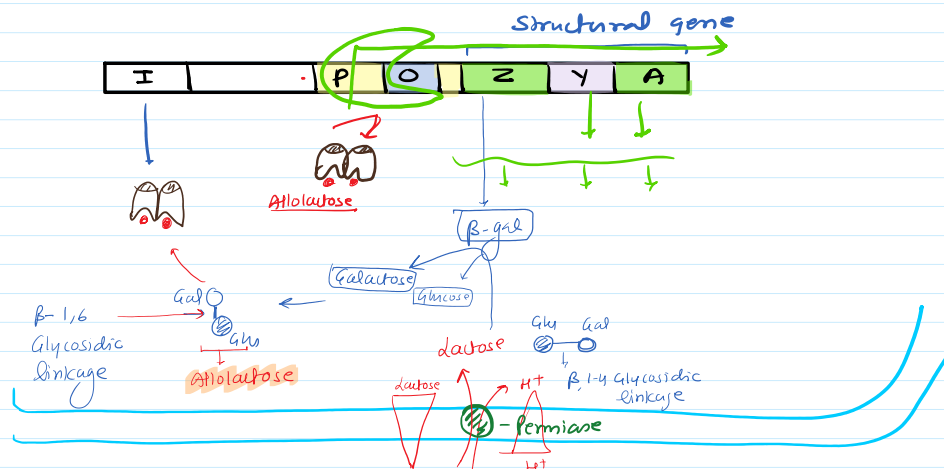 Structural gene
I P O Z Y A
Allolactose
β-gal
Galactose
Glucose
Gal
Glu
β-1,6
Glycosidic
linkage
Allolactose
Lactose
Glu Gal
β,1-4 Glycosidic
linkage
Lactose
H+
-Permiase
H+